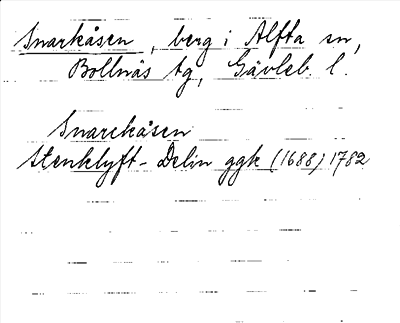 Snarkåsen, berg i Alfta sn,
Bollnäs tg, Gävleb. l.
Snarekåsen
Stenklyft - Delin ggk (1688) 1782